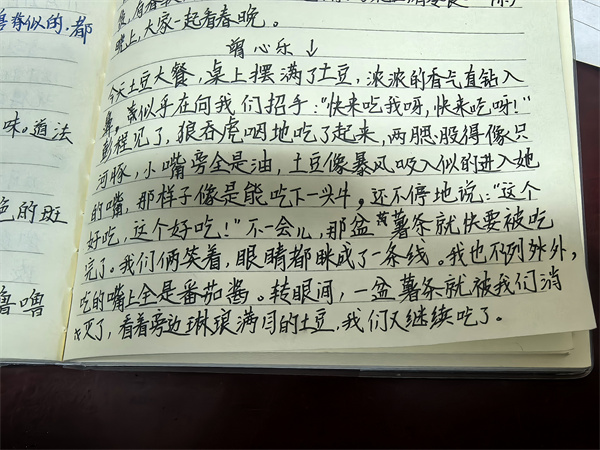 兽脊似的,都
味。道法
色的斑
噜噜
晚上,大家一起看春晚。
翁心乐↓
今天土豆大餐,桌上摆满了土豆,浓浓的香气直钻入
鼻,似乎在向我们招手:“快来吃我呀,快来吃呀!”
彭程见了,狼吞虎咽地吃了起来,两腮股得像只
河豚,小嘴旁全是油,土豆像暴风吸入似的进入她
的嘴,那样子像是能吃下一头牛。还不停地说:“这个
好吃,这个好吃!”不一会儿,那盆薯条就快要被吃
完了。我们俩笑着,眼睛都眯成了一条线。我也不列外外,
吃的嘴上全是番茄酱。转眼间,一盆薯条就被我们消
灭了,看着旁边琳琅满目的土豆,我们又继续吃了。